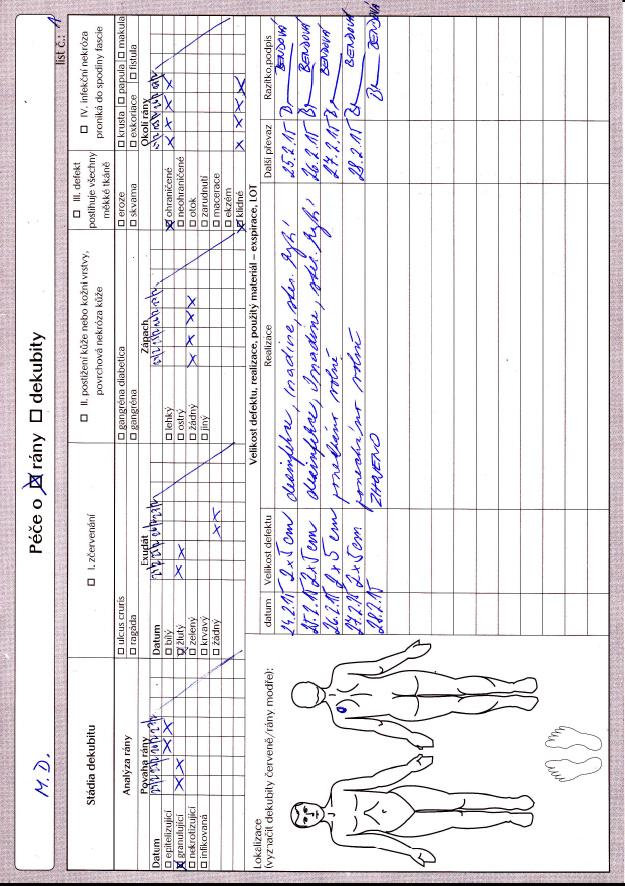 M. D.
Péče o ☒ rány ☐ dekubity
list č.: 1
Stádia dekubitu
☐ I. zčervenání
☐ II. postižení kůže nebo kožní vrstvy,
povrchová nekróza kůže
☐ III. defekt
postihuje všechny
měkké tkáně
☐ IV. infekční nekróza
proniká do spodiny fascie
Analýza rány
☐ ulcus cruris
☐ ragáda
☐ gangréna diabetica
☐ gangréna
☐ eroze
☐ skvama
☐ krusta ☐ papula ☐ makula
☐ exkoriace ☐ fistula
Povaha rány
Datum
☐ epitelizující X X
☒ granulující X X
☐ nekrotizující
☐ infikovaná
Exudát
Datum
☐ bílý
☒ žlutý X X
☐ zelený
☐ krvavý
☐ žádný X X
Zápach
☐ lehký
☐ ostrý
☐ žádný X X X X
☐ jiný
Okolí rány
☒ ohraničené X X X X
☐ neohraničené
☐ otok
☐ zarudnutí
☐ macerace
☐ ekzém
☒ klidné X X X X
Lokalizace
(vyznačit dekubity červeně/rány modře):
Velikost defektu, realizace, použitý materiál – exspirace, LOT
datum Velikost defektu Realizace Další převaz Razítko, podpis
24.2.15 2x5 cm desinfekce, Inadine, ster. krytí 25.2.15 BENDOVÁ
25.2.15 2x5 cm desinfekce, Inadine, ster. krytí 26.2.15 BENDOVÁ
26.2.15 2x5 cm ponecháno volně 27.2.15 BENDOVÁ
27.2.15 2x5 cm ponecháno volně 28.2.15 BENDOVÁ
28.2.15 ZHOJENO BENDOVÁ